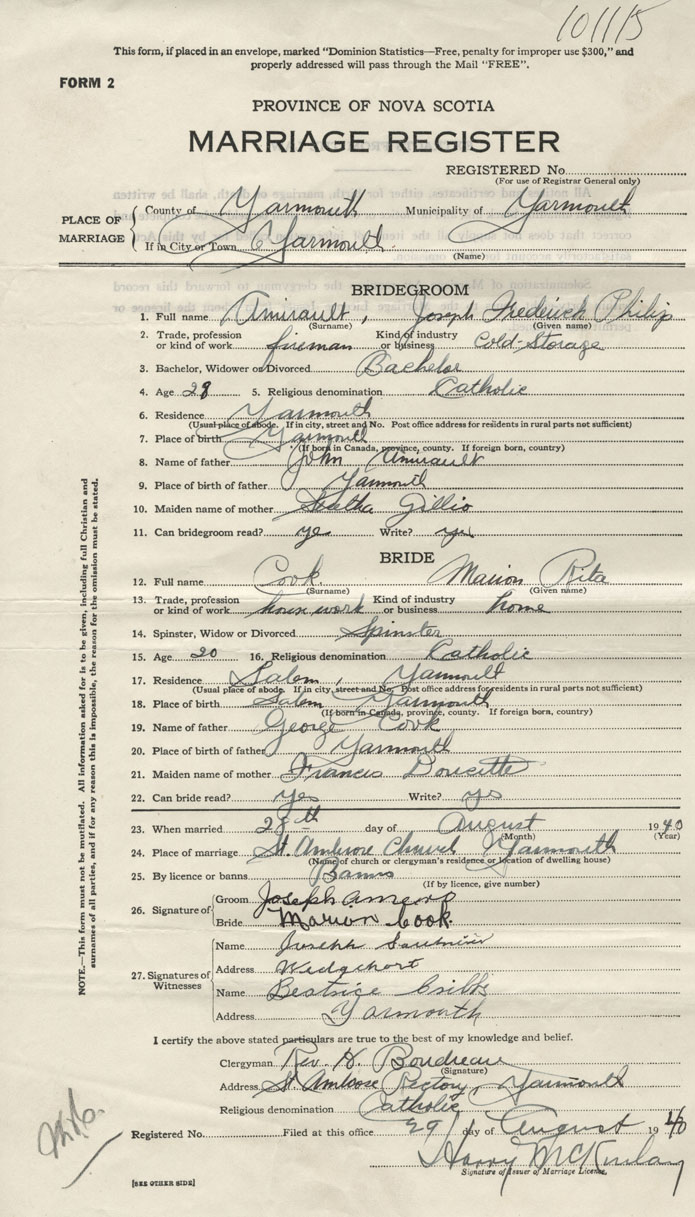 101115
This form, if placed in an envelope, marked "Dominion Statistics—Free, penalty for improper use $300," and
properly addressed will pass through the Mail "FREE".
FORM 2
PROVINCE OF NOVA SCOTIA
MARRIAGE REGISTER
REGISTERED No.
(For use of Registrar General only)
PLACE OF MARRIAGE
County of Yarmouth Municipality of Yarmouth
If in City or Town Yarmouth
(Name)
BRIDEGROOM
1. Full name Amirault, Joseph Frederick Philip
(Surname) (Given name)
2. Trade, profession or kind of work fireman Kind of industry or business Cold-Storage
3. Bachelor, Widower or Divorced Bachelor
4. Age 28 5. Religious denomination Catholic
6. Residence Yarmouth
(Usual place of abode. If in city, street and No. Post office address for residents in rural parts not sufficient)
7. Place of birth Yarmouth
(If born in Canada, province, county. If foreign born, country)
8. Name of father John Amirault
9. Place of birth of father Yarmouth
10. Maiden name of mother Gillio
11. Can bridegroom read? yes Write? yes
BRIDE
12. Full name Cook Marion Rita
(Surname) (Given name)
13. Trade, profession or kind of work house work Kind of industry or business home
14. Spinster, Widow or Divorced Spinster
15. Age 20 16. Religious denomination Catholic
17. Residence Salem, Yarmouth
(Usual place of abode. If in city, street and No. Post office address for residents in rural parts not sufficient)
18. Place of birth Salem Yarmouth
(If born in Canada, province, county. If foreign born, country)
19. Name of father George Cook
20. Place of birth of father Yarmouth
21. Maiden name of mother Francis Doucette
22. Can bride read? yes Write? yes
23. When married 28th day of August 1940
(Month) (Year)
24. Place of marriage St. Ambrose Church Yarmouth
(Name of church or clergyman's residence or location of dwelling house)
25. By licence or banns Banns
(If by licence, give number)
26. Signature of
Groom Joseph
Bride Marion Cook.
27. Signatures of Witnesses
Name Joseph
Address Wedgeport
Name Beatrice
Address Yarmouth
I certify the above stated particulars are true to the best of my knowledge and belief.
Clergyman Rev. H. Boudreau
(Signature)
Address St. Ambrose Rectory, Yarmouth
Religious denomination Catholic
Registered No. Filed at this office 29 day of August 1940
Harry McKinlay
Signature of Issuer of Marriage License.
[SEE OTHER SIDE]
NOTE.—This form must not be mutilated. All information asked for is to be given, including full Christian and
surnames of all parties, and if for any reason this is impossible, the reason for the omission must be stated.